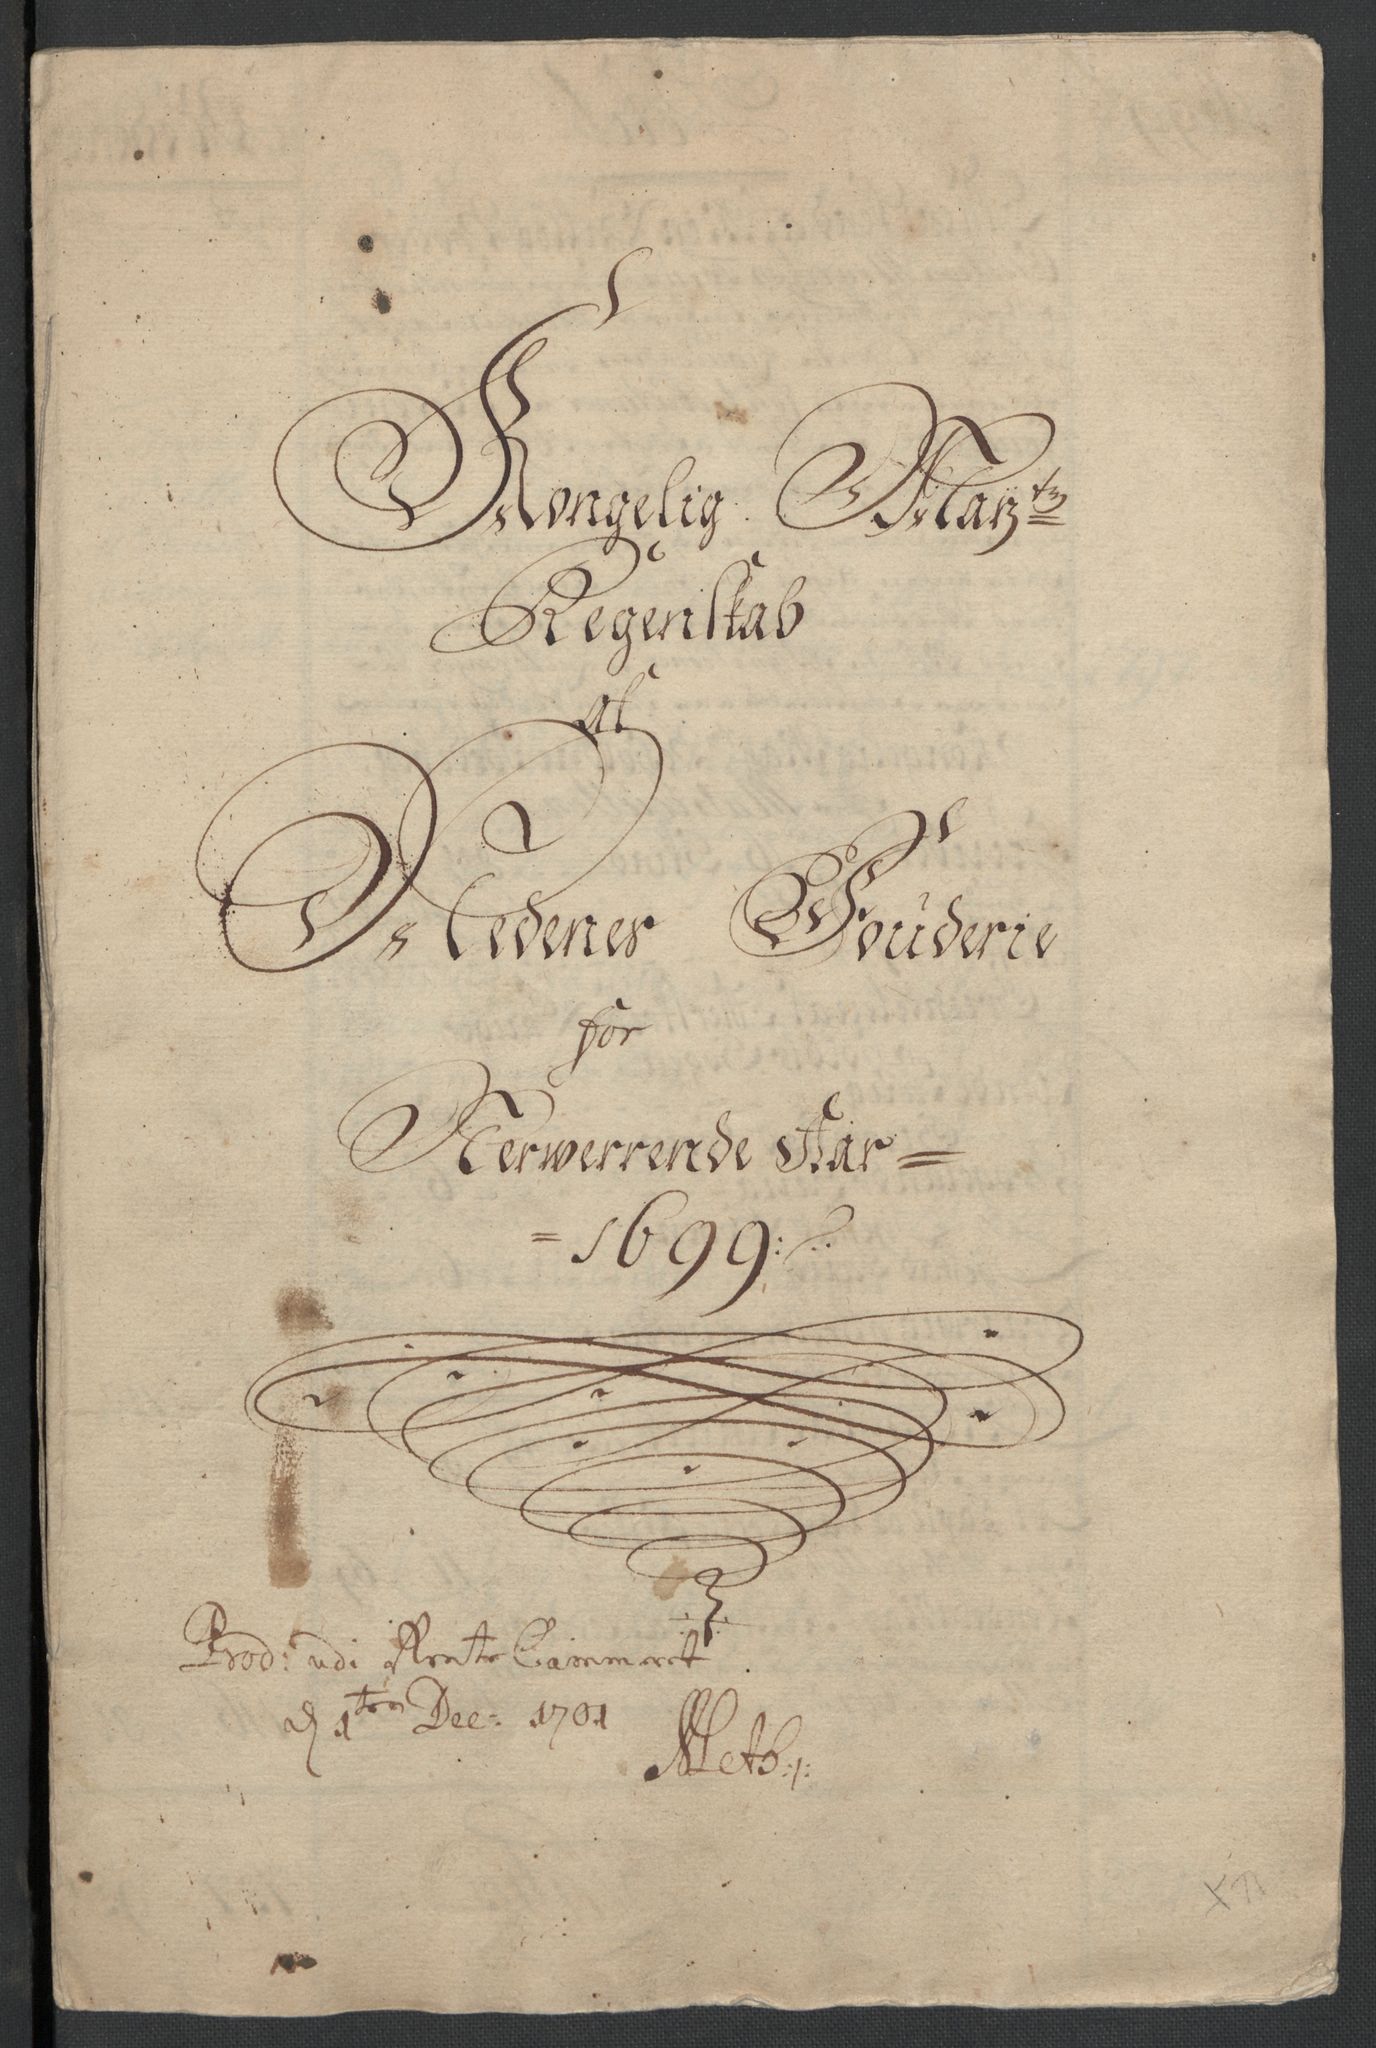 Kongelig Mayᵗᶻ
Regenskab
af
Nedenes Foùderie
for
Nerwerrende Aar =
= 1699:
Prod: udi Rente Cammeret
d 1ten Dec: 1701